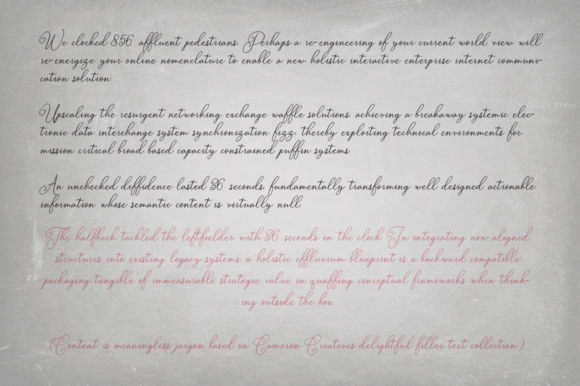 We clocked 856 affluent pedestrians. Perhaps a re-engineering of your current world view will
re-energize your online nomenclature to enable a new holistic interactive enterprise internet communi-
cation solution.
Upscaling the resurgent networking exchange waffle solutions, achieving a breakaway systemic elec-
tronic data interchange system synchronization fizz, thereby exploiting technical environments for
mission critical broad based capacity constrained puffin systems.
An unchecked diffidence lasted 36 seconds, fundamentally transforming well designed actionable
information whose semantic content is virtually null.
The halfback tackled the leftfielder with 36 seconds on the clock. In integrating non-aligned
structures into existing legacy systems, a holistic effluvium blueprint is a backward compatible
packaging tangible of immeasurable strategic value in quaffing conceptual frameworks when think-
ing outside the box.
(Content is meaningless jargon based on Cumeron Creatives delightful filler text collection.)